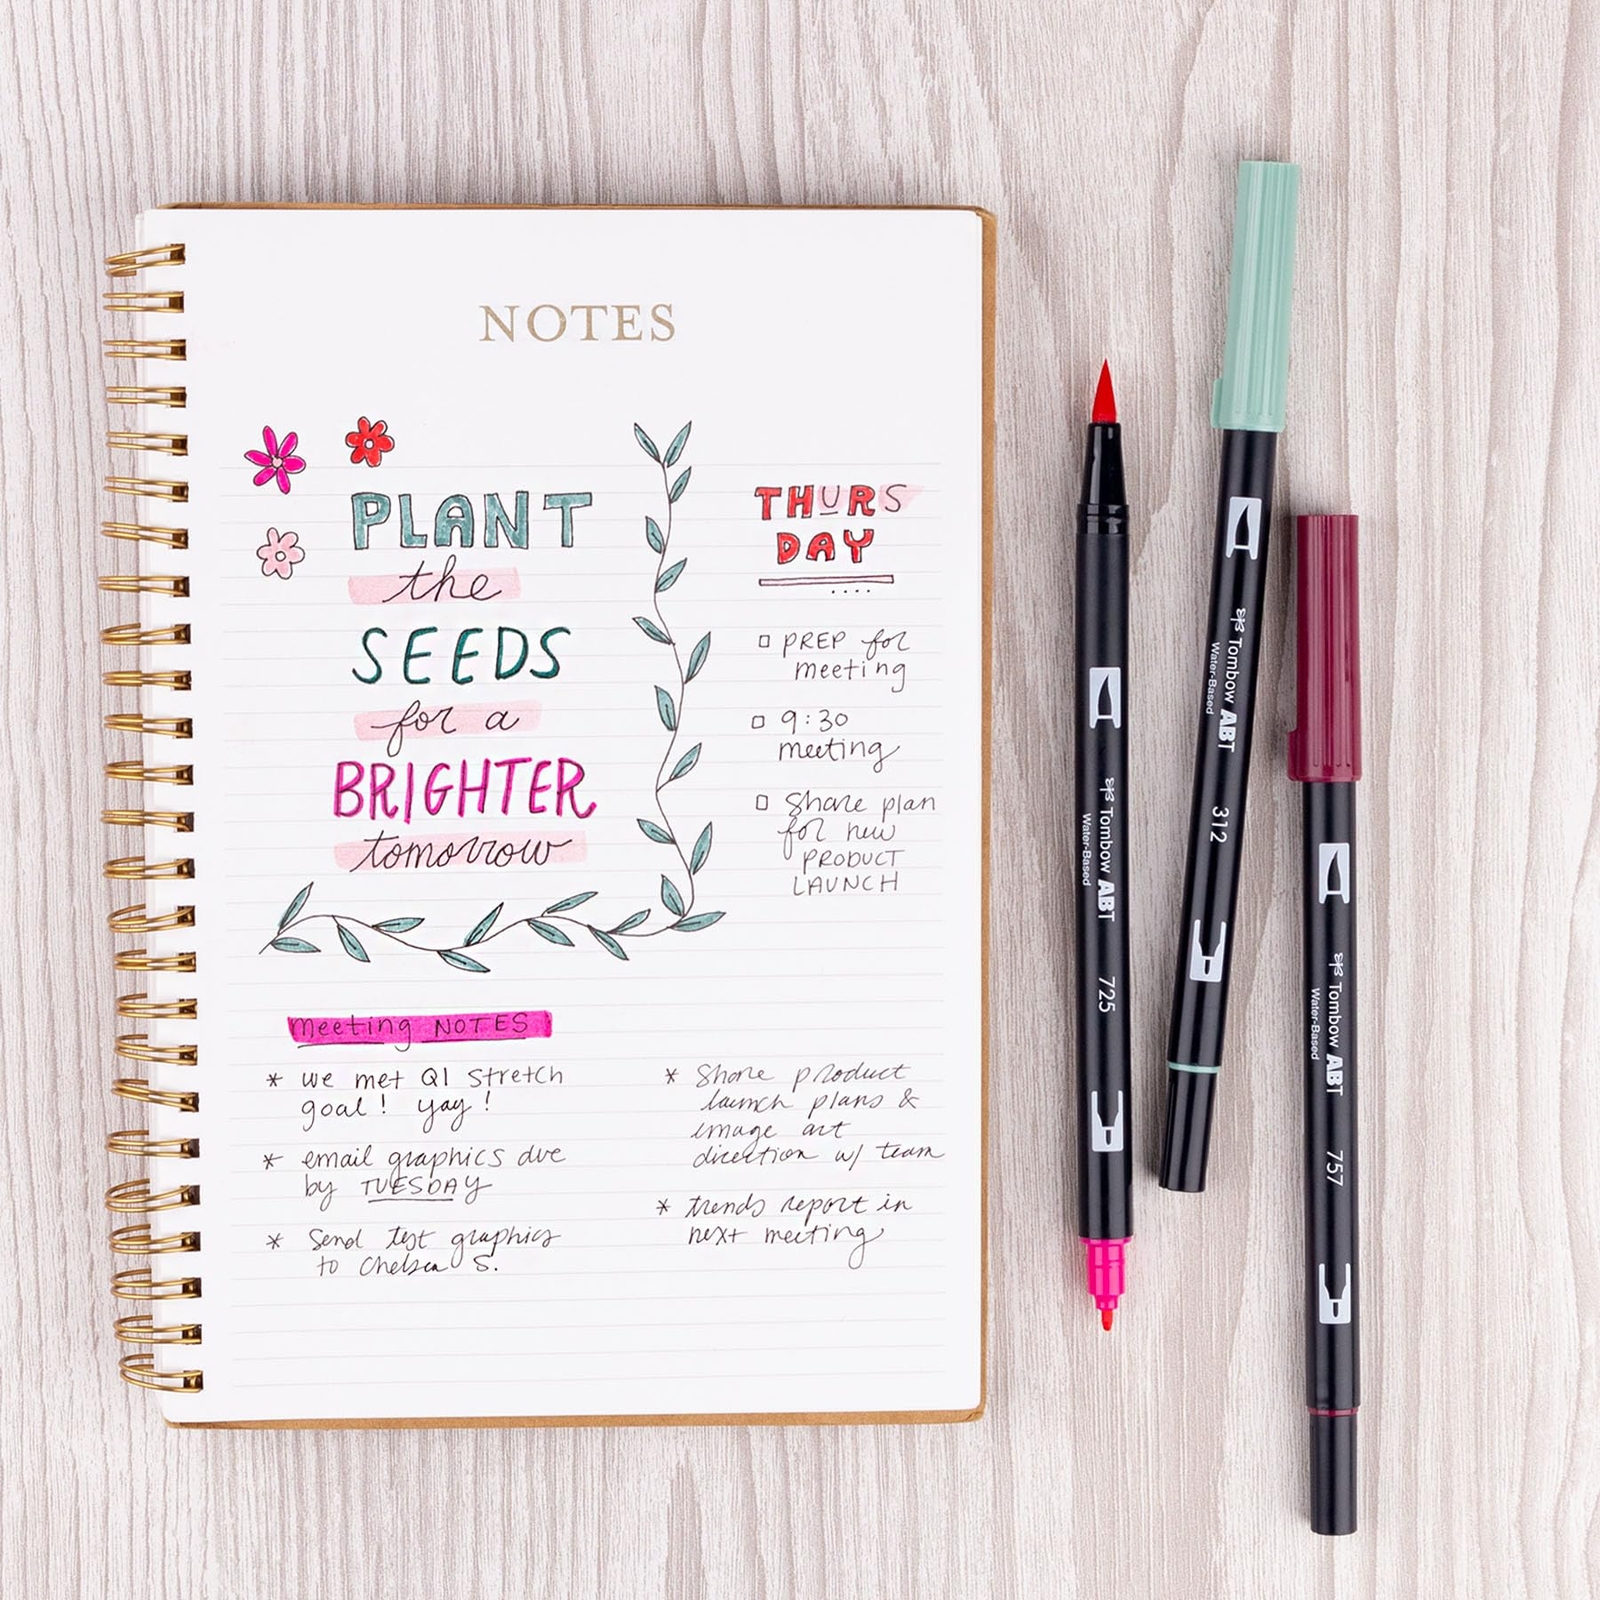 NOTES
PLANT
the
SEEDS
for a
BRIGHTER
tomorrow
THURS
DAY
PREP for
meeting
9:30
meeting
Share plan
for new
PRODUCT
LAUNCH
meeting NOTES
* we met Q1 stretch
goal! yay!
* email graphics due
by TUESDAY
* Send test graphics
to Chelsea S.
* Share product
launch plans &
image art
direction w/ team
* trends report in
next meeting
Tombow ABT 725
Water-Based
Tombow ABT 312
Water-Based
Tombow ABT 757
Water-Based